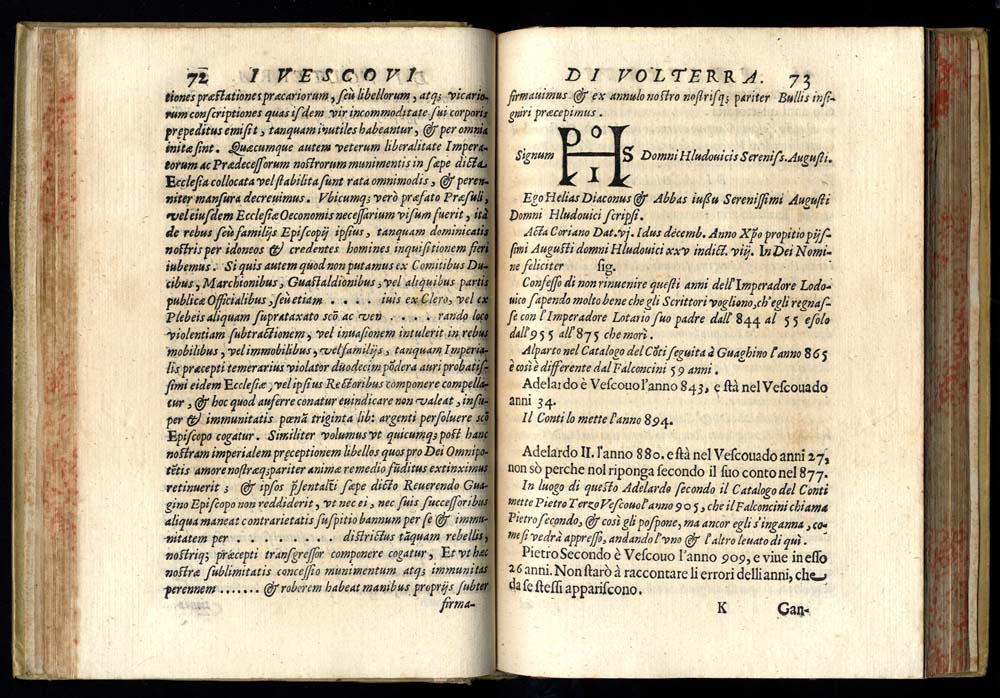 72 I VESCOVI
tiones præstationes præcariorum, seù libellorum, atq; vicario-
rum conscriptiones quas isdem vir incommoditate sui corporis
prępeditus emisit, tanquam inutiles habeantur, & per omnia
initæ sint. Quæcumque autem veterum liberalitate Impera-
torum ac Prædecessorum nostrorum munimentis in sæpe dicta
Ecclesia collocata vel stabilita sunt rata omnimodis, & peren-
niter mansura decreuimus. Vbicumq; verò præfato Præsuli,
vel eiusdem Ecclesiæ Oeconomis necessarium visum fuerit, ità
de rebus seù familijs Episcopij ipsius, tanquam dominicatis
nostris per idoneos & credentes homines inquisitionem fieri
iubemus. Si quis autem quod non putamus ex Comitibus Du-
cibus, Marchionibus, Guastaldionibus, vel aliquibus partis
publicæ Officialibus, seù etiam . . . . iuis ex Clero, vel ex
Plebeis aliquam suprataxato scõ ac ven . . . . rando loco
violentiam subtractionem, vel inuasionem intulerit in rebus
mobilibus, vel immobilibus, vel familijs, tanquam Imperia-
lis præcepti temerarius violator duodecim põdera auri probatis-
simi eidem Ecclesiæ, vel ipsius Rectoribus componere compella-
tur, & hoc quod auferre conatur euindicare non valeat, insu-
per & immunitatis pœnã triginta lib: argenti persoluere scõ
Episcopo cogatur. Similiter volumus vt quicumq; post hanc
nostram imperialem pręceptionem libellos quos pro Dei Omnipo-
tẽtis amore nostræq; pariter animæ remedio fũditus extinximus
retinuerit; & ipsos p̃sentalt̃i sæpe dicto Reuerendo Gua-
gino Episcopo non reddiderit, vt nec ei, nec suis successoribus
aliqua maneat contrarietatis suspitio bannum per se & immu-
nitatem per . . . . . . . . districtus tãquam rebellis,
nostriq; præcepti transgressor componere cogatur, Et vt hæc
nostræ sublimitatis concessio munimentum atq; immunitas
perennem ....... & roborem habeat manibus proprijs subter
firma-
DI VOLTERRA. 73
firmauimus & ex annulo nostro nostrisq; pariter Bullis insi-
gniri præcepimus.
Signum P O H I S Domni Hludouicis Sereniss. Augusti.
Ego Helias Diaconus & Abbas iussu Serenissimi Augusti
Domni Hludouici scripsi.
Acta Coriano Dat. vj. Idus decemb. Anno Xp̃o propitio pijs-
simi Augusti domni Hludouici xxv indict. viij. In Dei Nomi-
ne feliciter sig.
Confesso di non rinuenire questi anni dell'Imperadore Lodo-
uico sapendo molto bene che gli Scrittori vogliono, ch'egli regnas-
se con l'Imperadore Lotario suo padre dall' 844 al 55 e solo
dall' 955 all' 875 che morì.
Al parto nel Catalogo del Cõti seguita à Guaghino l'anno 865
è così è differente dal Falconcini 59 anni.
Adelardo è Vescouo l'anno 843, e stà nel Vescouado
anni 34.
Il Conti lo mette l'anno 894.
Adelardo II. l'anno 880. e stà nel Vescouado anni 27,
non sò perche nol riponga secondo il suo conto nel 877.
In luogo di questo Adelardo secondo il Catalogo del Conti
mette Pietro Terzo Vescouo l'anno 905, che il Falconcini chiama
Pietro secondo, & così gli pospone, ma ancor egli s'inganna, co-
me si vedrà appresso, andando l'vno & l'altro leuato di quì.
Pietro Secondo è Vescouo l'anno 909, e viue in esso
26 anni. Non starò à raccontare li errori delli anni, che
da se stessi appariscono.
K Gan-